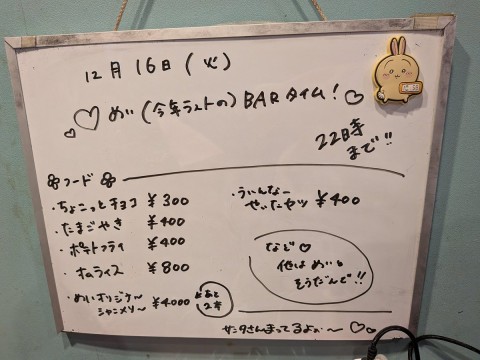 12月16日(火)
♡♡ めい(今年ラストの)BARタイム! ♡
22時まで!!
フード
・ちょこっとチョコ ¥300
・たまごやき ¥400
・ポテトフライ ¥400
・オムライス ¥800
・めいオリジナ〜シャンメリ〜 ¥4000
あと2本
・ういんなーやいたヤツ ¥400
など♡
他はめいに
そうだんで!!
サンタさんまってるよぉ〜♡♡